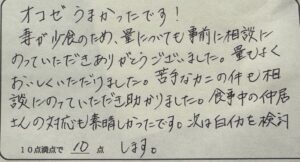 オコゼうまかったです！
妻が少食のため、量についても事前に相談に
のっていただきありがとうございました。量もよく
おいしくいただけました。苦手なカニの件も相
談にのっていただき助かりました。食事中の仲居
さんの対応も素晴しかったです。次は白イカを検討
10点満点で 10 点 します。